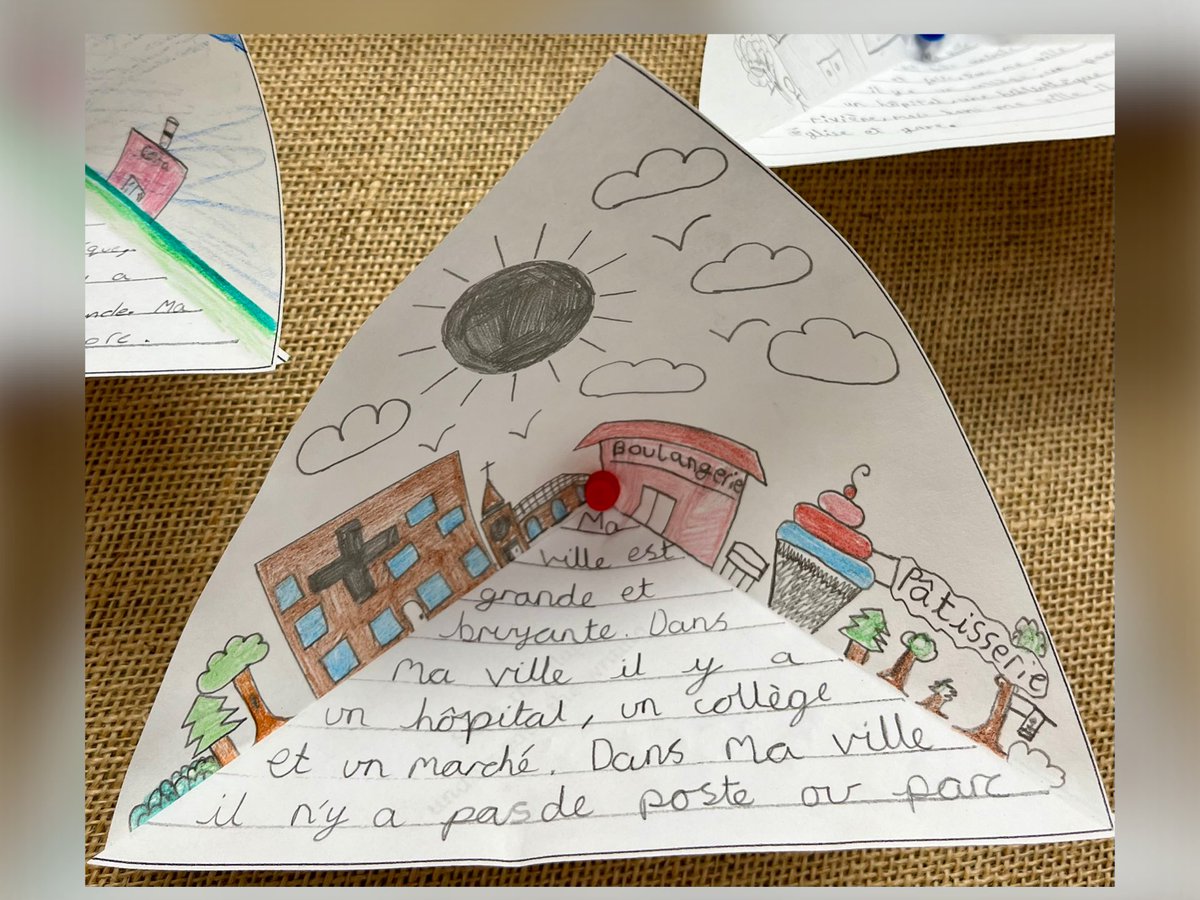 Boulangerie
Pâtisserie
Ma
ville est
grande et
bruyante. Dans
Ma ville il y a
un hôpital, un collège
et un marché. Dans Ma ville
il n'y a pas de poste ou parc
y a
Ma
ma ville
un hôpital une bibliothèque
ma ville il
église et parc.